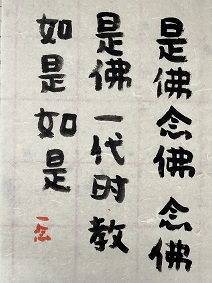 是佛念佛念佛
是佛一代时教
如是如是
一念